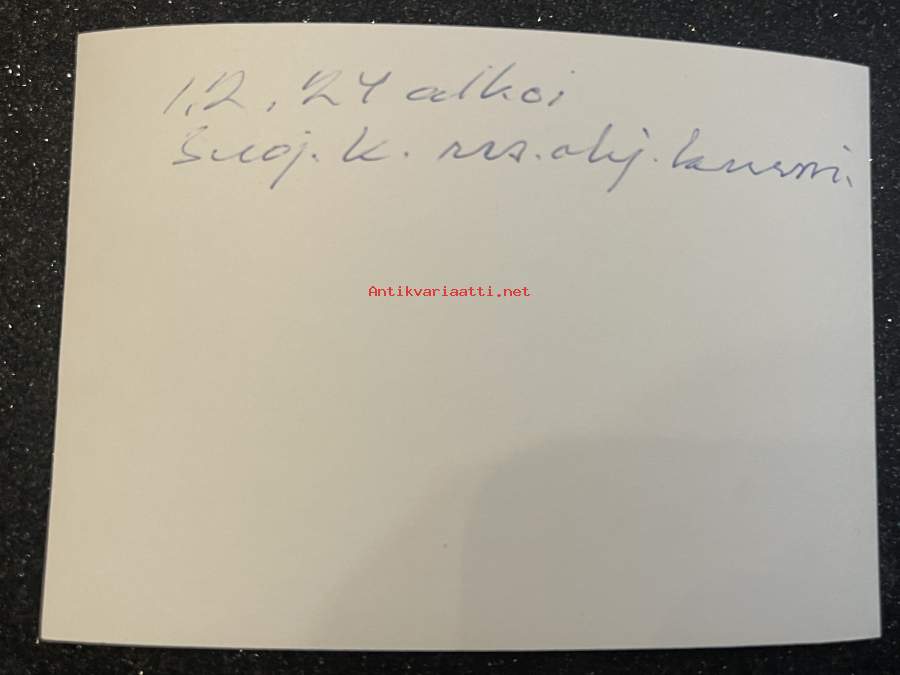 1.2.24 alkoi
Suoj.k. urs.ohj.kurssi.
Antikvariaatti.net